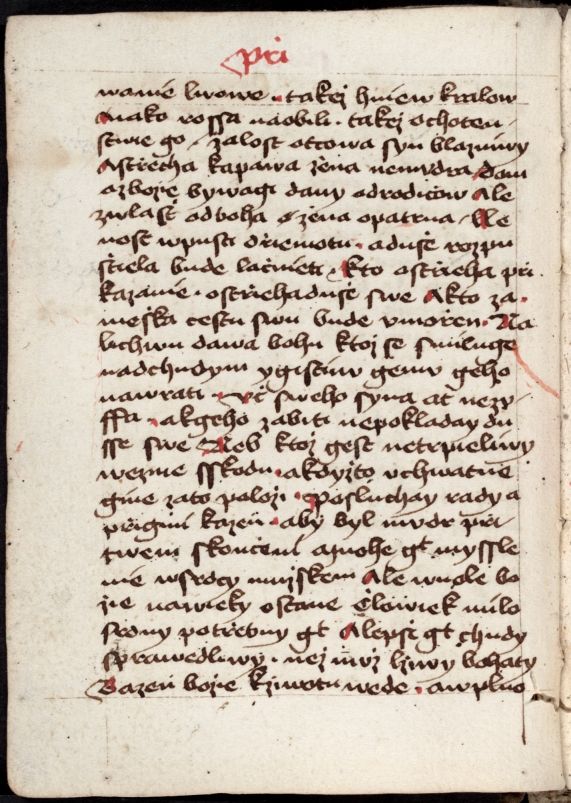 pri
wanie lwowe · takej hniew kralow
A iako rossa naobili · takej ochoten
stwie go · zalost otcowa syn blazniwy
A strzecha kapawa zena nemudra dom
a zbozie bywagi dany odrodicow Ale
zwlast odboha zena opatrna · Ne
nost wpusti drziemotu · aduse rozpu
stiela bude lacnieti · kto ostrzieha pri
kazanie · ostrziehaduse swe A kto za
meska cestu swu bude vmorzen · Na
lichwu dawa bohu ktoz se smiluge
nadchudym ygistiw gemu geho
nawrati · Vc sweho syna at nezu
ffa · akgeho zabiti nepokladay du
sse swe Neb ktoz gest netrpieliwy
wezme sskodu · akdyzto vchwatne
gine zato polozi · posluchay rady a
prigmi kazen · aby byl mudr pri
twem skonceni amohe gt myssle
nie wsrdcy muzskem Ale wuole bo
zie nawieky ostane Clowiek milo
srdny potrzebny gt A lepsi gt chudy
sprawedliwy · nez muz lziwy bohaty
Bazen bozie kziwotu wede · awplno